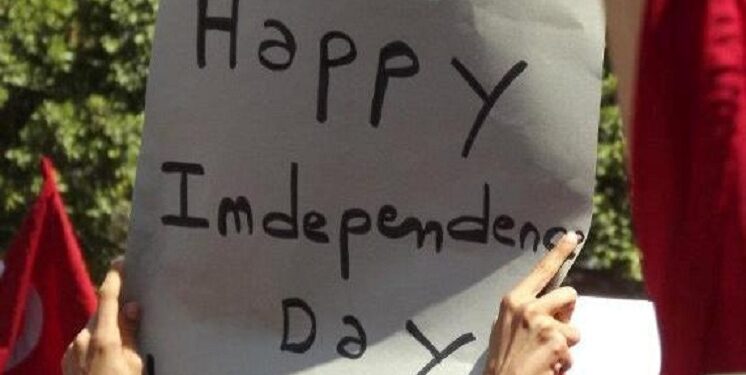 Happy
Imdependence
Day